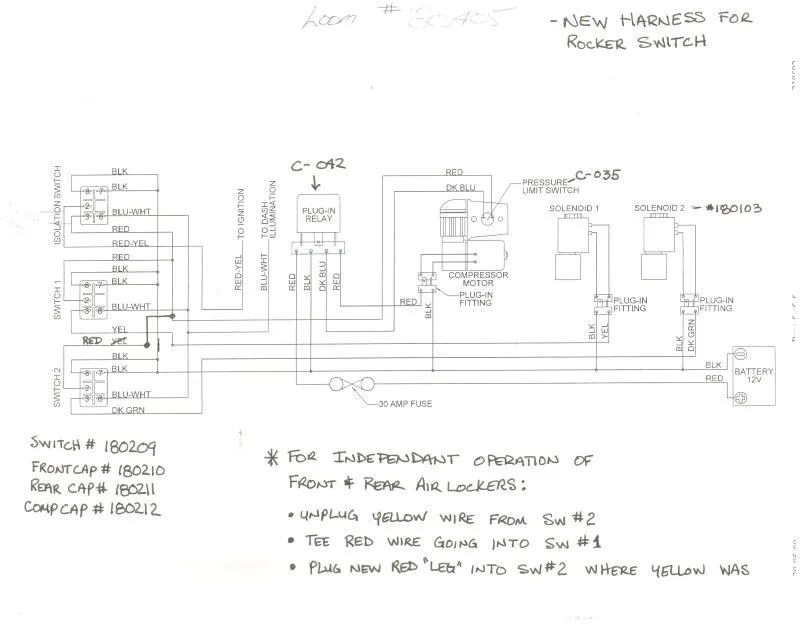 Loom # 180405
- NEW HARNESS FOR
ROCKER SWITCH
C-042
PLUG-IN
RELAY
RED
DK.BLU
PRESSURE
LIMIT SWITCH
C-035
SOLENOID 1
SOLENOID 2 - #180103
ISOLATION SWITCH
BLK
BLK
BLU-WHT
RED
RED-YEL
8 7
2
3 6
RED-YEL
TO IGNITION
BLU-WHT
TO DASH
ILLUMINATION
RED
BLK
DK.BLU
RED
COMPRESSOR
MOTOR
PLUG-IN
FITTING
RED
BLK
PLUG-IN
FITTING
BLK
YEL
PLUG-IN
FITTING
BLK
DK.GRN
SWITCH 1
RED
BLK
BLK
BLU-WHT
YEL
8 7
2
3 6
RED YEL
SWITCH 2
BLK
BLK
BLU-WHT
DK.GRN
8 7
2
3 6
30 AMP FUSE
BLK
RED
BATTERY
12V
SWITCH # 180209
FRONT CAP # 180210
REAR CAP # 180211
COMP CAP # 180212
* FOR INDEPENDANT OPERATION OF
FRONT & REAR AIR LOCKERS:
• UNPLUG YELLOW WIRE FROM SW #2
• TEE RED WIRE GOING INTO SW #1
• PLUG NEW RED "LEG" INTO SW#2 WHERE YELLOW WAS